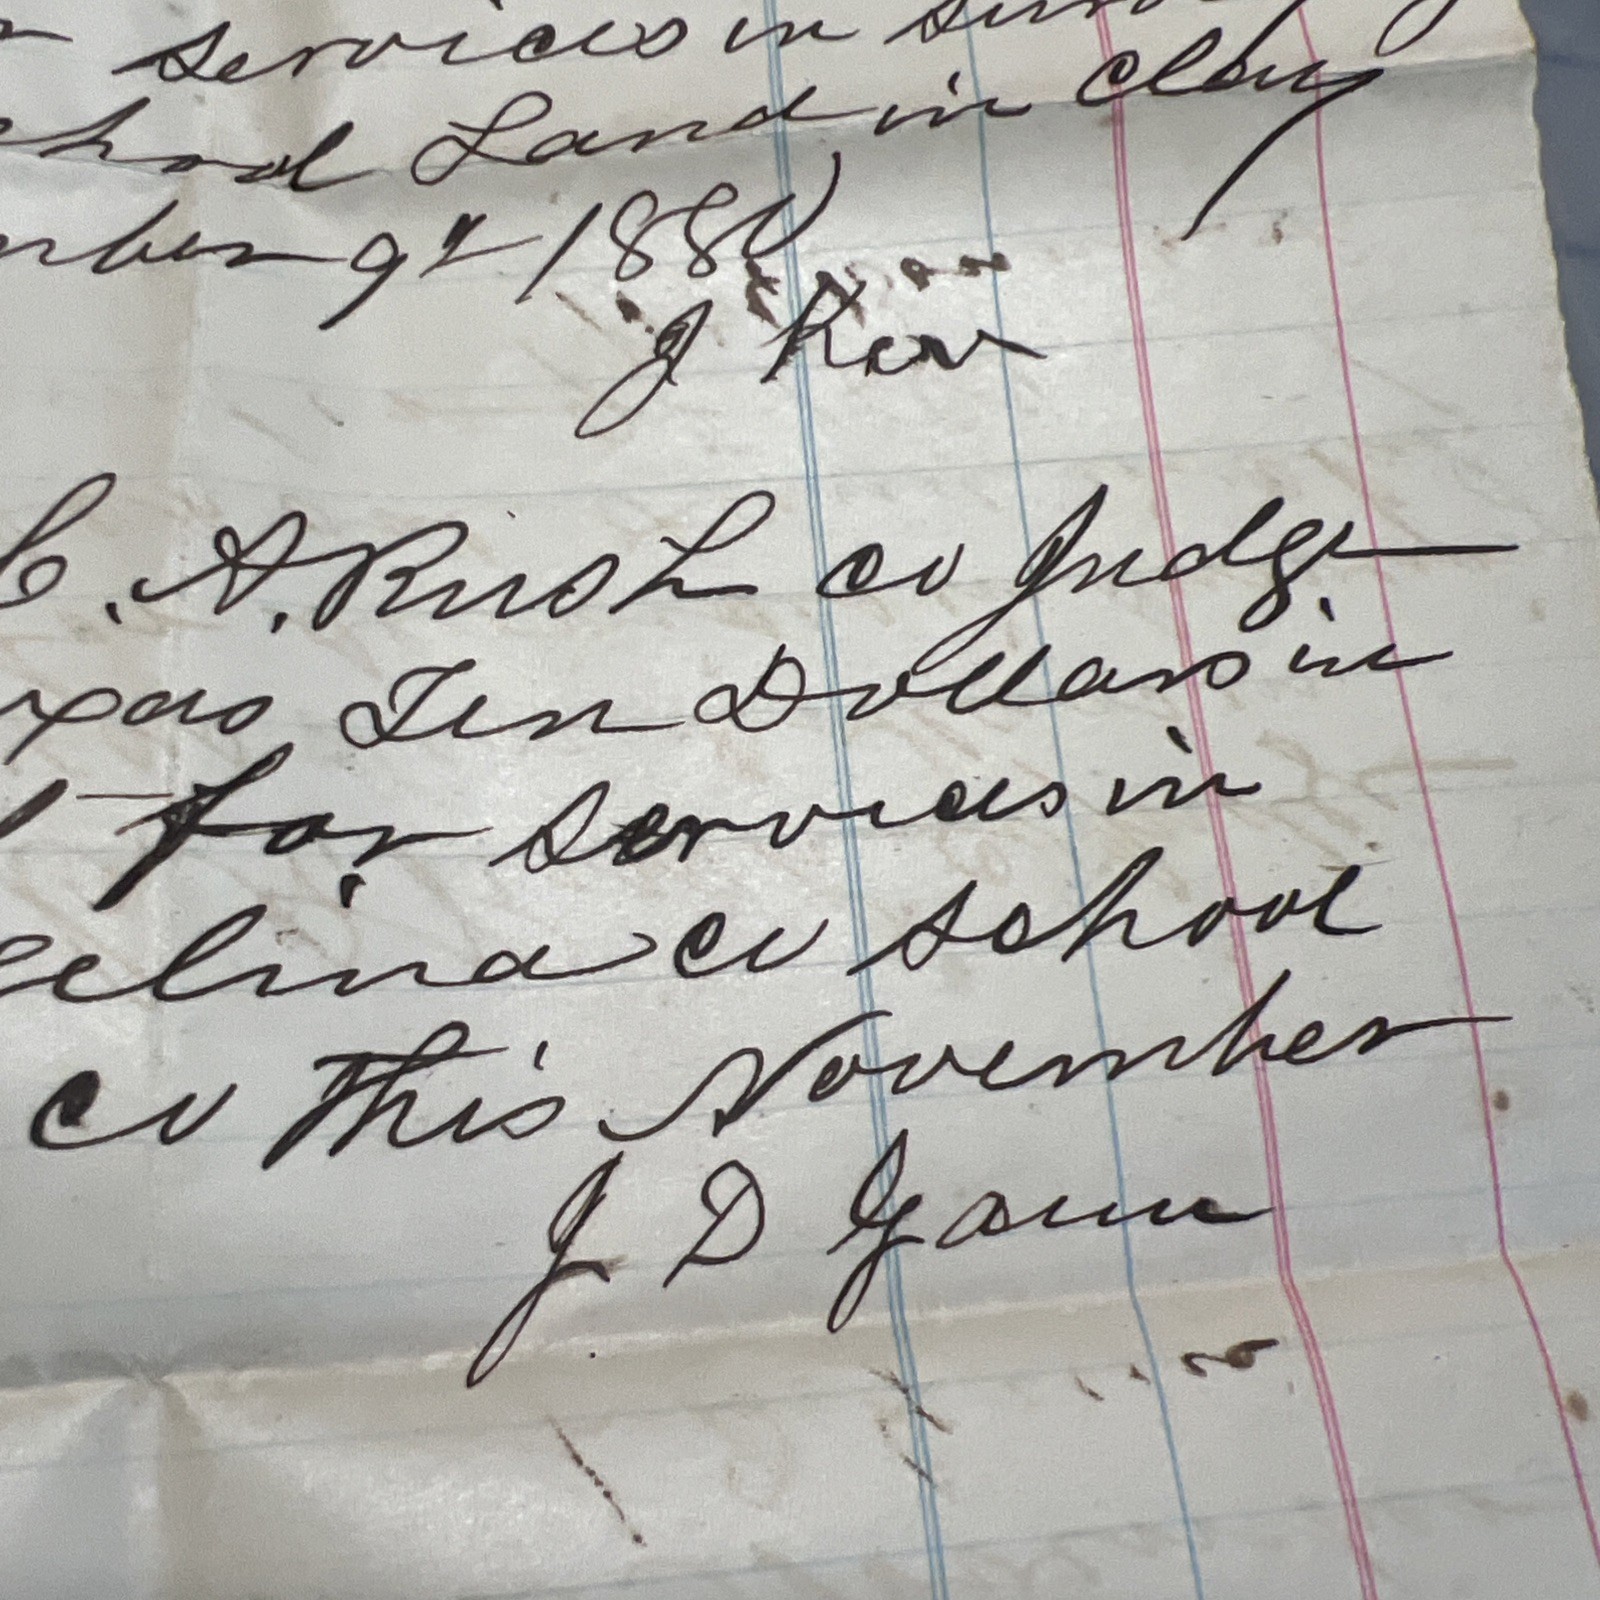 services in
school Land in Clay
mber 9th 1880
J Kerr
C. A. Rush co Judge
exas Ten Dollars in
for services in
gelina co school
co this November
J D Gann